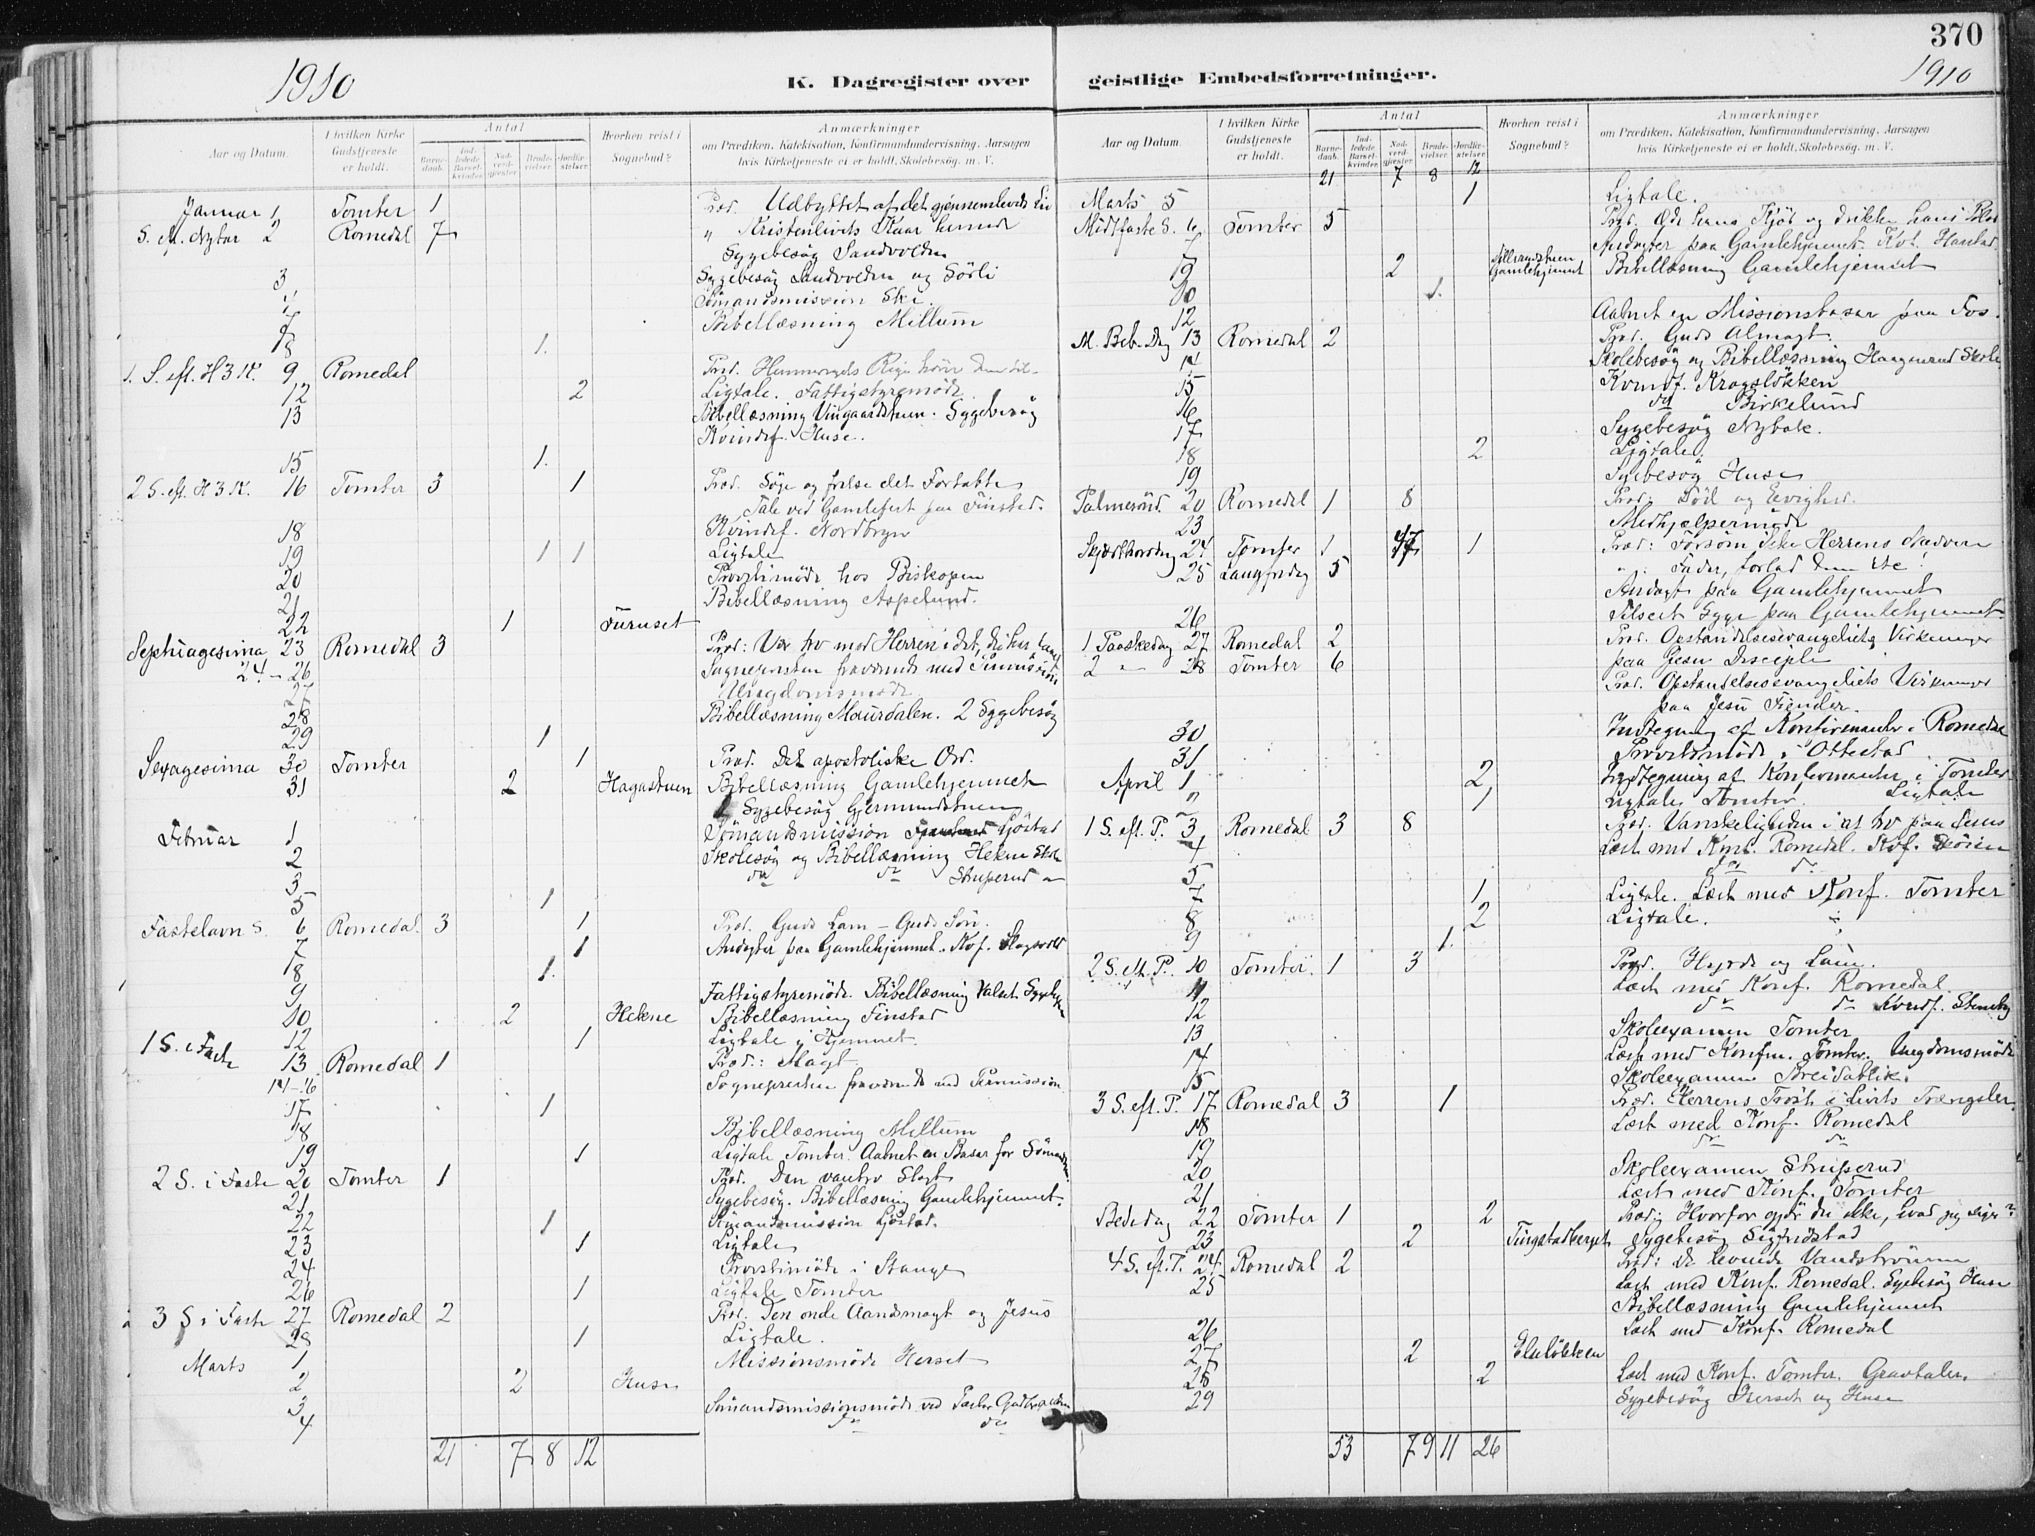 370
1910
K. Dagregister over
geistlige Embedsforretninger.
1910
Aar og Datum.
I hvilken Kirke Gudstjeneste er holdt.
Antal
Barne-daab.
Ind-ledede Barsel-kvinder.
Nad-verd-gjester.
Brude-vielser.
Jordfæ-stelser.
Hvorhen reist i Sognebud?
Anmærkninger
om Prædiken, Katekisation, Konfirmandundervisning, Aarsagen
hvis Kirketjeneste ei er holdt, Skolebesøg, m. V.
Januar 1 Tomter 1 Præd. Udbyttet af det gjennemlevede
S. ef. Nytaar 2 Romedal 7 " Kristenlivets Kaar
Sygebesög Sandvolden
3 Sygebesög Sandvolden og Sörli
4 Sömandsmission Ski.
7 Bibellæsning Millum
8 1.
1. S. eft. H 3 K. 9 Romedal Præd. Himmeriges Rige hörer dem til.
12 2 Ligtale. Fattigstyremöde.
13 Bibellæsning Vingaardstuen. Sygebesög
Kvindef. Huse.
15 1.
2 S. eft. H 3 K. 16 Tomter 3 1 Præd. Söge og frelse det Fortabte
Tale ved Gamlefest paa Finstad.
18 Kvindef. Nordbryn
19 1 1 Ligtale
20 Provstimöde hos Biskopen
21 Bibellæsning Aspelund.
22 1 Furuset
Septuagesima 23 Romedal 3 Præd:
24.-26 Sognepresten fraværende
27 Ungdomsmöde
28 Bibellæsning Maurdalen. 2 Sygebesög
29 1
Sexagesima 30 Tomter 1 Præd. Det apostoliske Ord.
31 2 Hagastuen Bibellæsning Gamlehjemmet
Sygebesög Gjermundstuen
Februar 1 Sömandsmission Gjöstad
2 Skolesög og Bibellæsning Hekne Skole
3 do do Struperud "
5 1
Fastelavn S. 6 Romedal 3 1 Præd. Guds Lam - Guds Sön.
7 1 Andagter paa Gamlehjemmet.
8 1.
9 Fattigstyremöde. Bibellæsning Valset
10 2 Hekne Bibellæsning Finstad
12 1 Ligtale i Hjemmet.
1 S. i Faste 13 Romedal 1 Præd.: Magt.
14-16 Sognepresten fraværende
17 1
18 Bibellæsning Millum
19 1 Ligtale Tomter. Aabnet en Basar for
2 S. i Faste 20 Tomter 1 Præd. Den vantro Slægt
21 Sygebesög. Bibellæsning Gamlehjemmet.
22 1 Sömandsmission Gjöstad.
23 1 Ligtale
24 Provstimöde i Stange
26 1 Ligtale Tomter
3 S i Faste 27 Romedal 2 Præd. Den onde Aandsmagt og Jesus
28 1 Ligtale.
Marts 1 Missionsmöde Herset
2 2 Huse
3 Sömandsmissionsmöde ved Pastor
4 do do
21 7 8 12
Aar og Datum.
I hvilken Kirke Gudstjeneste er holdt.
Antal
Barne-daab.
Ind-ledede Barsel-kvinder.
Nad-verd-gjester.
Brude-vielser.
Jordfæ-stelser.
Hvorhen reist i Sognebud?
Anmærkninger
om Prædiken, Katekisation, Konfirmandundervisning, Aarsagen
hvis Kirketjeneste ei er holdt, Skolebesøg, m. V.
21 7 8 12
Marts 5 1 Ligtale.
Midtfaste S. 6 Tomter 5 Præd. Æde hans Kjöt og drikke hans Blod
7 Andagter paa Gamlehjemmet.
9 2 Gamlehjemmet Bibellæsning Gamlehjemmet
10 1.
12 Aabnet en Missionsbasar paa Fos.
M. Beb. Dag 13 Romedal 2 Præd. Guds Almagt.
14 Skolebesög og Bibellæsning Haagenrud Skole
15 Kvindf. Kragslökken
16 do Birkelund
17 Sygebesög Nybak.
18 2 Ligtale.
19 Sygebesög Huse
Palmesönd. 20 Romedal 1 8 Præd:
23 Medhjælpermöde
Skjærthorsdag 24. Tomter 1 1 Præd: Forsöm ikke Herrens Nadvere
25 Langfredag 5 " : Fader, forlad dem etc!
Andagt paa Gamlehjemmet
26 Tilseet Syge paa Gamlehjemmet
1 Paaskedag 27 Romedal 2 Præd. Opstandelsesevangeliets Virkninger
paa Jesu Disciple
2 " 28 Tomter 6 Præd. Opstandelsesevangeliets Virkninger
paa Jesu Fiender.
30 Indtegning af Konfirmanter i Romedal
31 Provstimöde i Ottestad
April 1 2 Indtegning af Konfirmanter i Tomter
2 1 Ligtale Tomter. Ligtale
1 S. eft. P. 3 Romedal 3 8 Præd. Vanskeligheden i at tro paa Jesus
4 Læst med Konf. Romedal.
5 do do
7 1 Ligtale. Læst med Konf. Tomter
8 2 Ligtale.
9 1.
2 S. eft. P. 10 Tomter. 1 3 Præd. Hyrde og Lam.
11 Læst med Konf. Romedal.
12 do do Kvindf. Stenby
13 Skoleexamen Tomter
14 Læst med Konfm. Tomter. Ungdomsmöde
15 Skoleexamen Breidablik.
3 S. eft. P. 17 Romedal 3 1 Præd. Herrens Tröst i Livets Trængsler.
18 Læst med Konf. Romedal
19 do do
20 Skoleexamen Struperud
21 Læst med Konf. Tomter
Bededag 22 Tomter 1 2 Præd: Hvorfor gjör du ikke, hvad jeg siger?
23 2 Tingstadberget Sygebesög Sigfridstad
4 S. ef. P. 24 Romedal 2 Præd: De levende Vandströmme
25 Læst med Konf. Romedal. Sygebesög Huse
Bibellæsning Gamlehjemmet
26 Læst med Konf. Romedal
27 2 Elulökken
28 2 Læst med Konf. Tomter. Gravtaler.
29 Sygebesög Herset og Huse
53 79 11 26